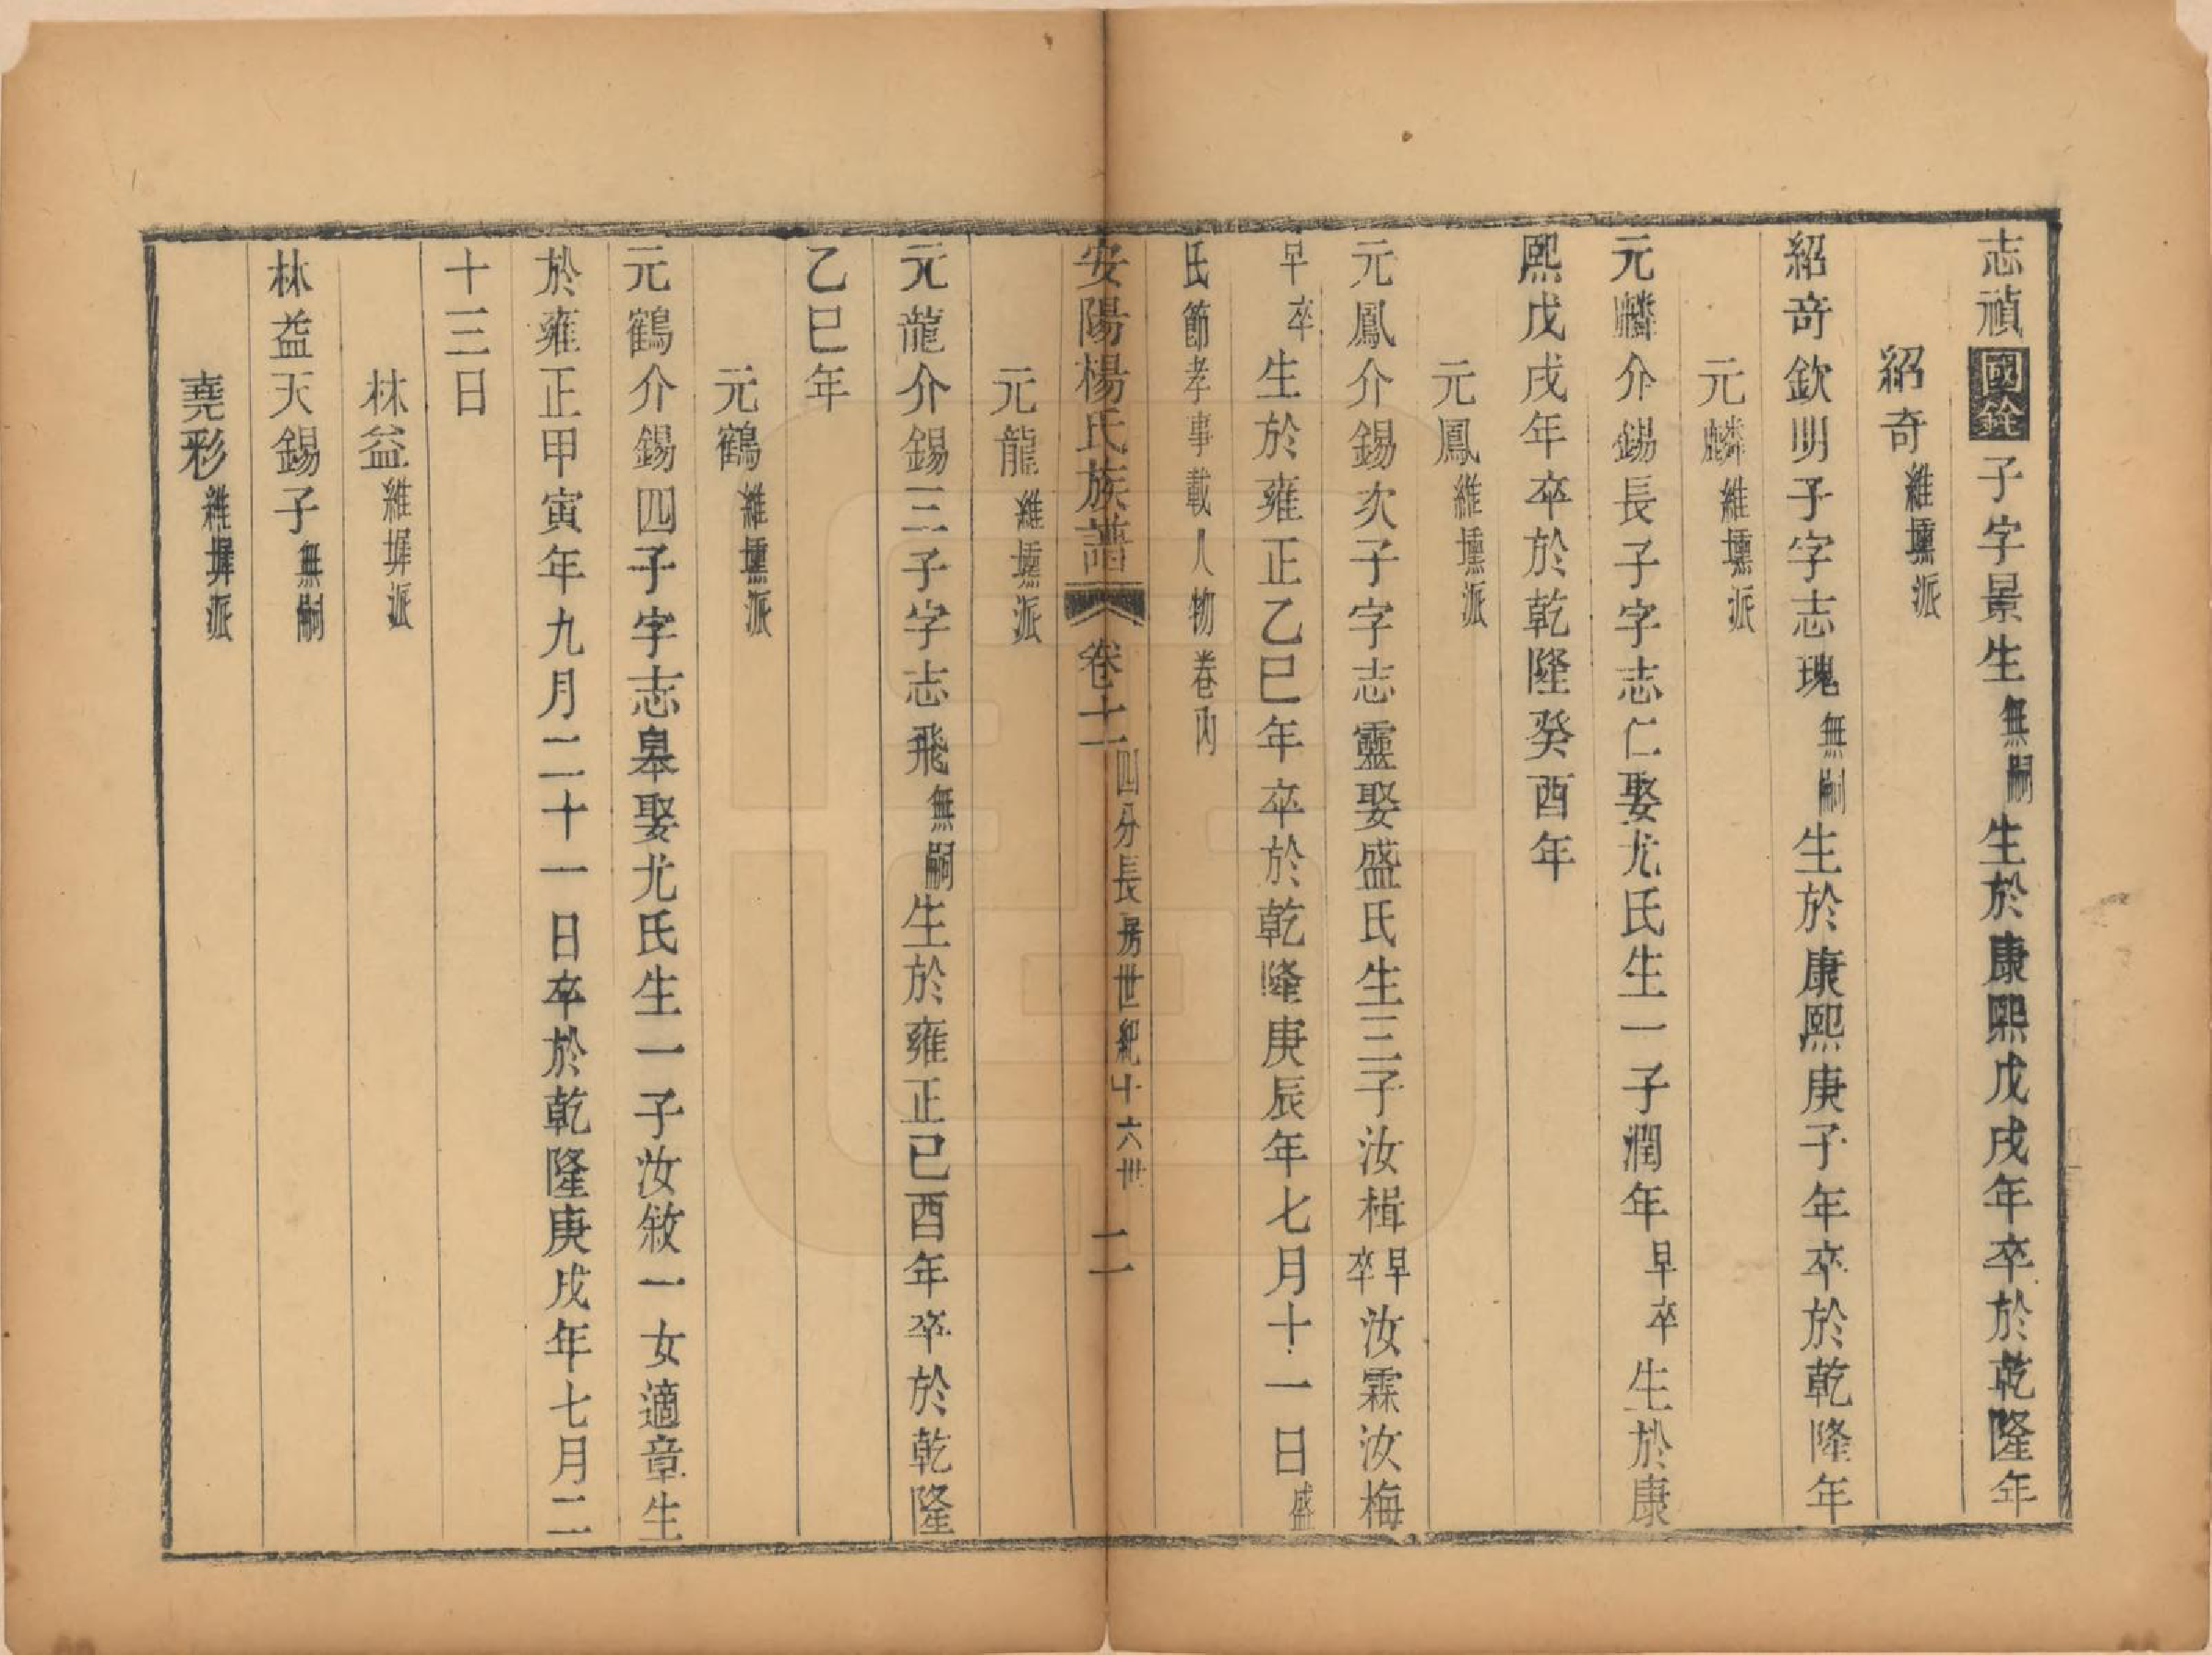 志禎國銓子字景生無嗣生於康熙戊戌年卒於乾隆年
紹奇維壎派
紹奇欽明子字志瑰無嗣生於康熙庚子年卒於乾隆年
元麟維壎派
元麟介錫長子字志仁娶尤氏生一子潤年早卒生於康
熙戊戌年卒於乾隆癸酉年
元鳳維壎派
元鳳介錫次子字志靈娶盛氏生三子汝楫早卒汝霖汝梅
早卒生於雍正乙巳年卒於乾隆庚辰年七月十一日盛
氏節孝事載人物卷內
安陽楊氏族譜 卷十一 四分長房世紀十六世 二
元龍維壎派
元龍介錫三子字志飛無嗣生於雍正己酉年卒於乾隆
乙巳年
元鶴維壎派
元鶴介錫四子字志皋娶尤氏生一子汝敘一女適章生
於雍正甲寅年九月二十一日卒於乾隆庚戌年七月二
十三日
林益維墀派
林益天錫子無嗣
堯彩維墀派